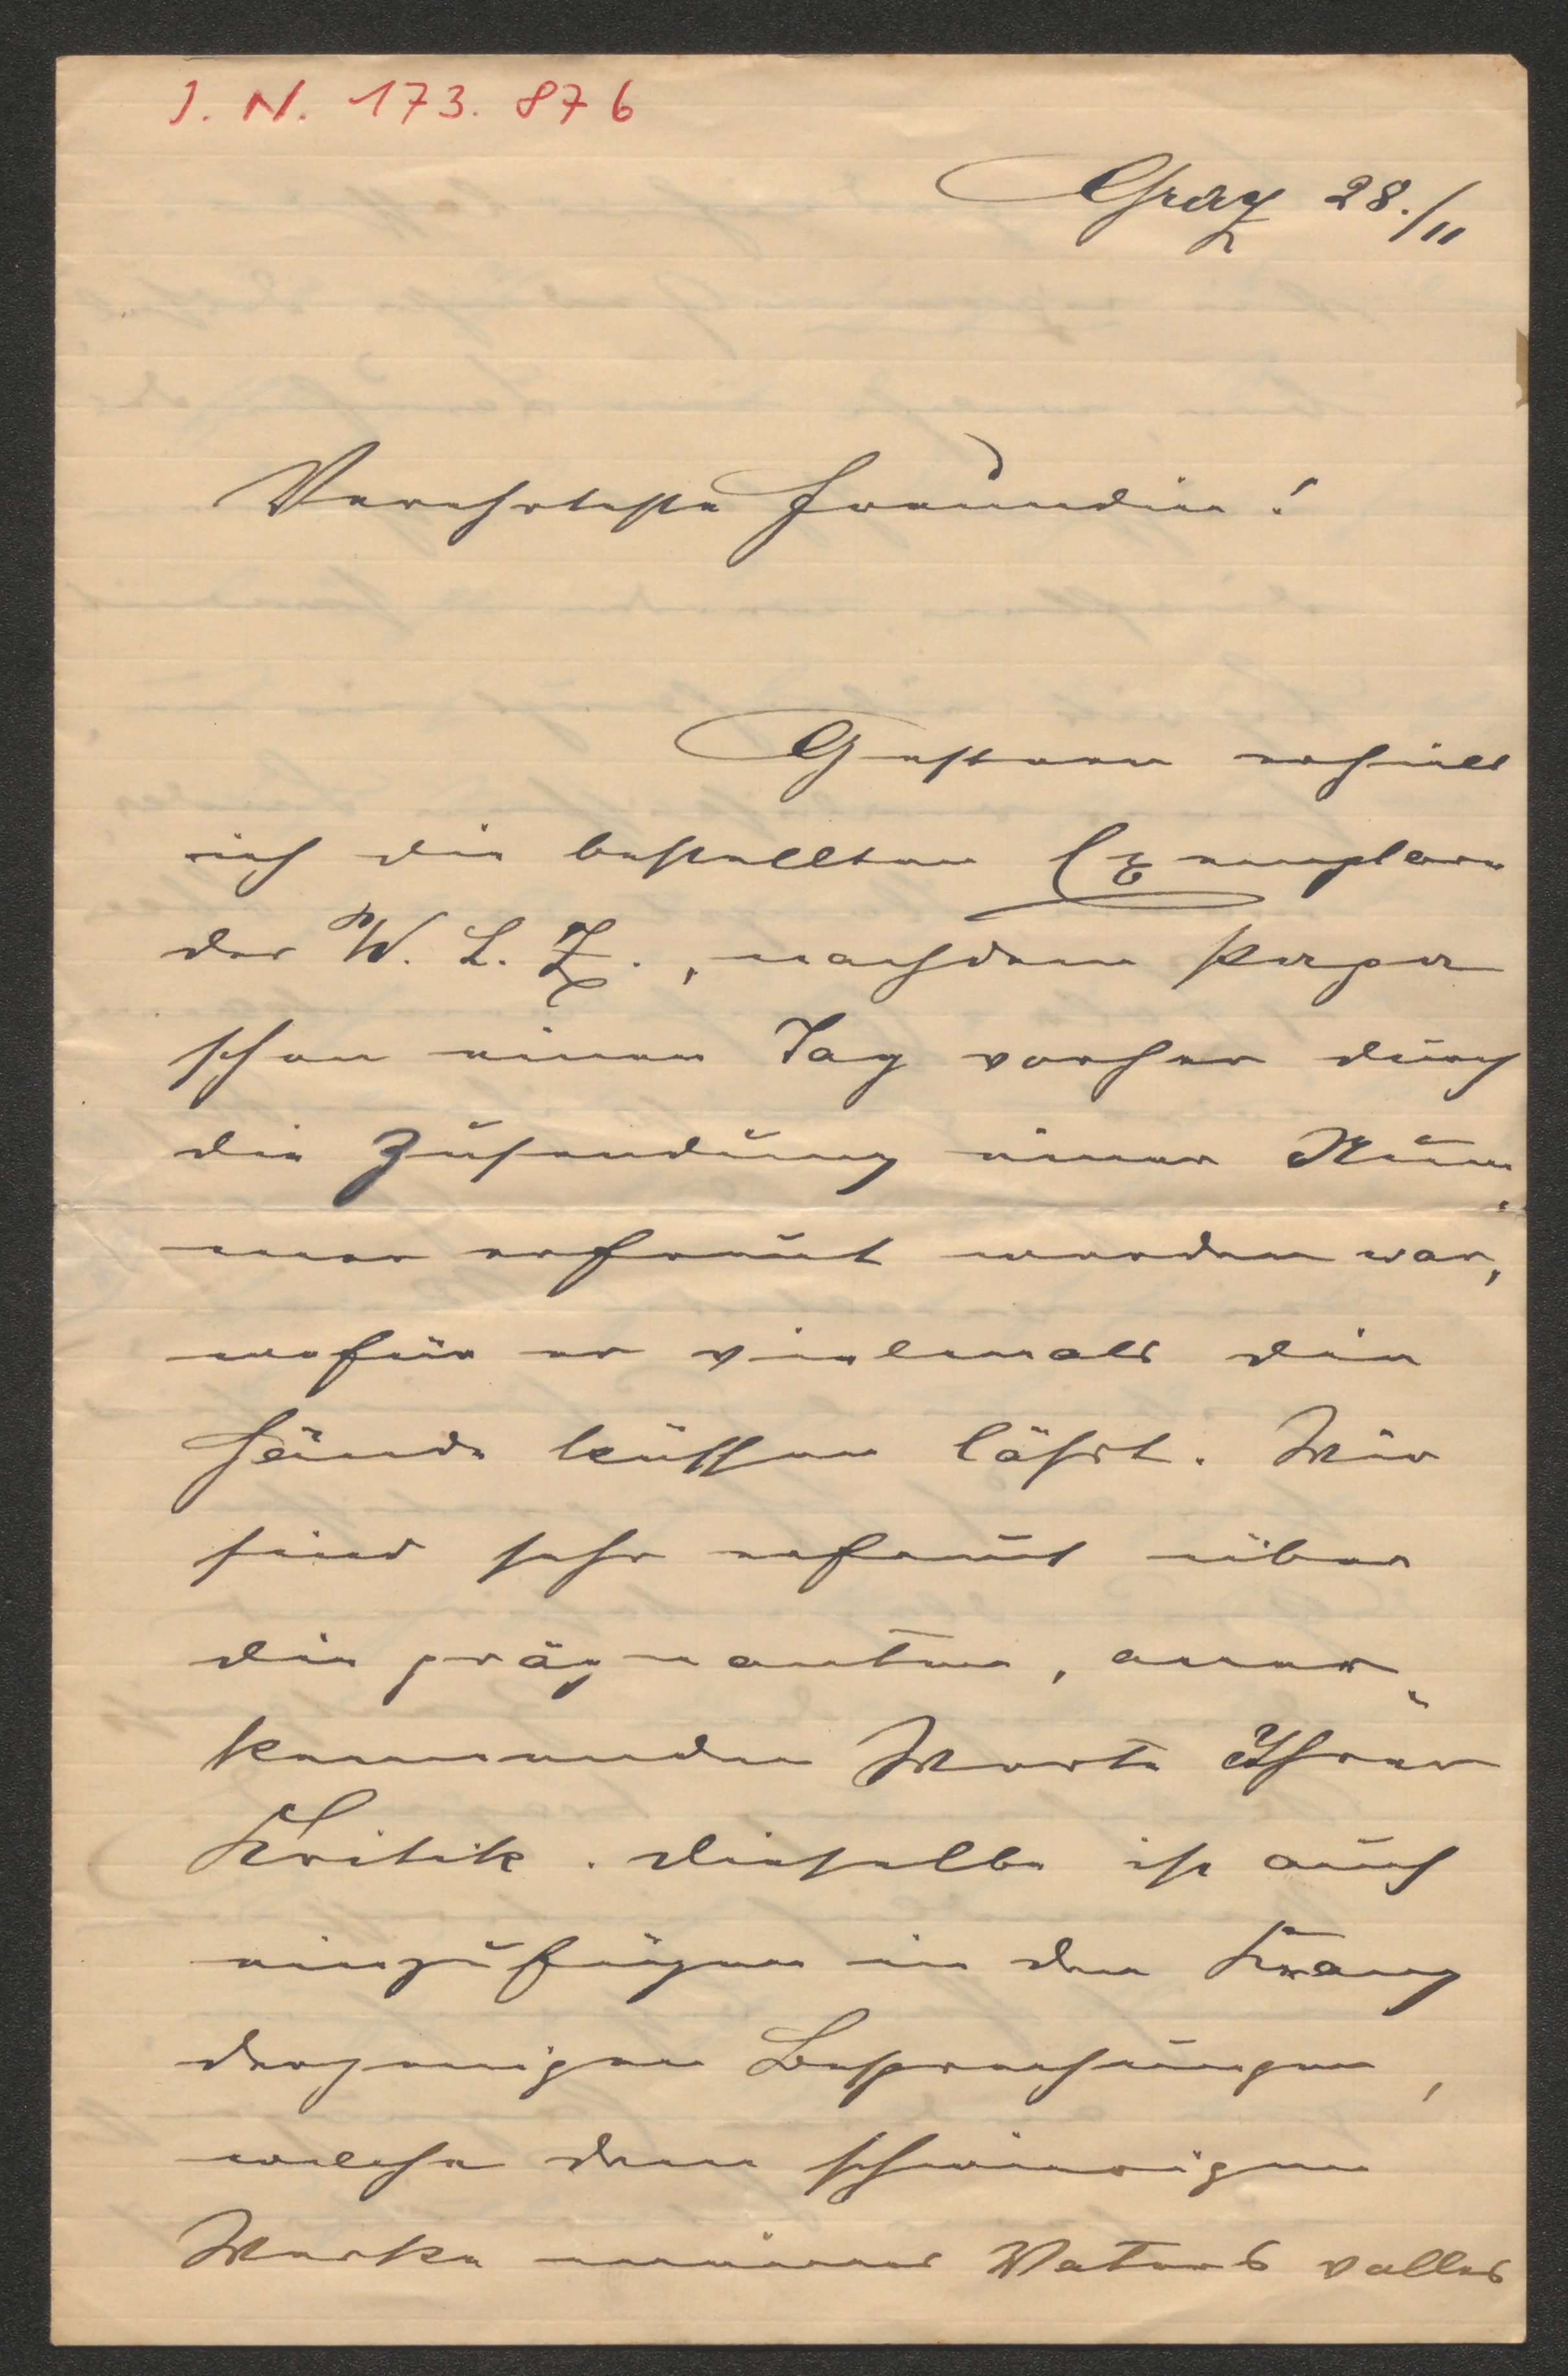 J. N. 173.876
Graz 28./11
Verehrteste Freundin!
Gestern erhielt
ich die bestellten Exemplare
der W. L. Z., nachdem Papa
schon einen Tag vorher durch
die Zusendung einer Num-
mer erfreut worden war,
wofür er vielemals die
Hände küssen läßt. Wir
sind sehr erfreut über
die prägnanten, aner-
kennenden Worte Ihrer
Kritik. Dieselbe ist auch
einzufügen in den Kranz
derjenigen Besprechungen,
welche dem schwierigen
Werke meines Vaters volles